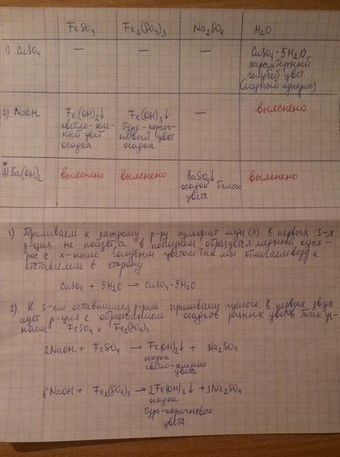 FeSO₄ Fe₂(SO₄)₃ Na₂SO₄ H₂O
1) CuSO₄ — — — CuSO₄·5H₂O
характерный
голубой цвет
(медный купорос)
2) NaOH Fe(OH)₂↓ Fe(OH)₃↓ — выяснено
светло-зеле-
ный цвет
осадка
буро-корич-
невый цвет
осадка
3) Ba(OH)₂ выяснено выяснено BaSO₄↓ выяснено
осадок белого
цвета
1) Приливаем к каждому р-ру сульфат меди (II). В первых 3-х
р-ция не пойдет, а в последнем образуется медный купо-
рос с голубым цветом, так мы воду и
отставляем в сторону
CuSO₄ + 5H₂O → CuSO₄·5H₂O
2) К 3-ем оставшимся р-рам приливаем щелочь. В первых двух
идет р-ция с образованием осадков разных цветов,
FeSO₄ и Fe₂(SO₄)₃
2NaOH + FeSO₄ → Fe(OH)₂↓ + Na₂SO₄
осадок
светло-зеленого
цвета
6NaOH + Fe₂(SO₄)₃ → 2Fe(OH)₃↓ + 3Na₂SO₄
осадок
буро-коричневого
цвета